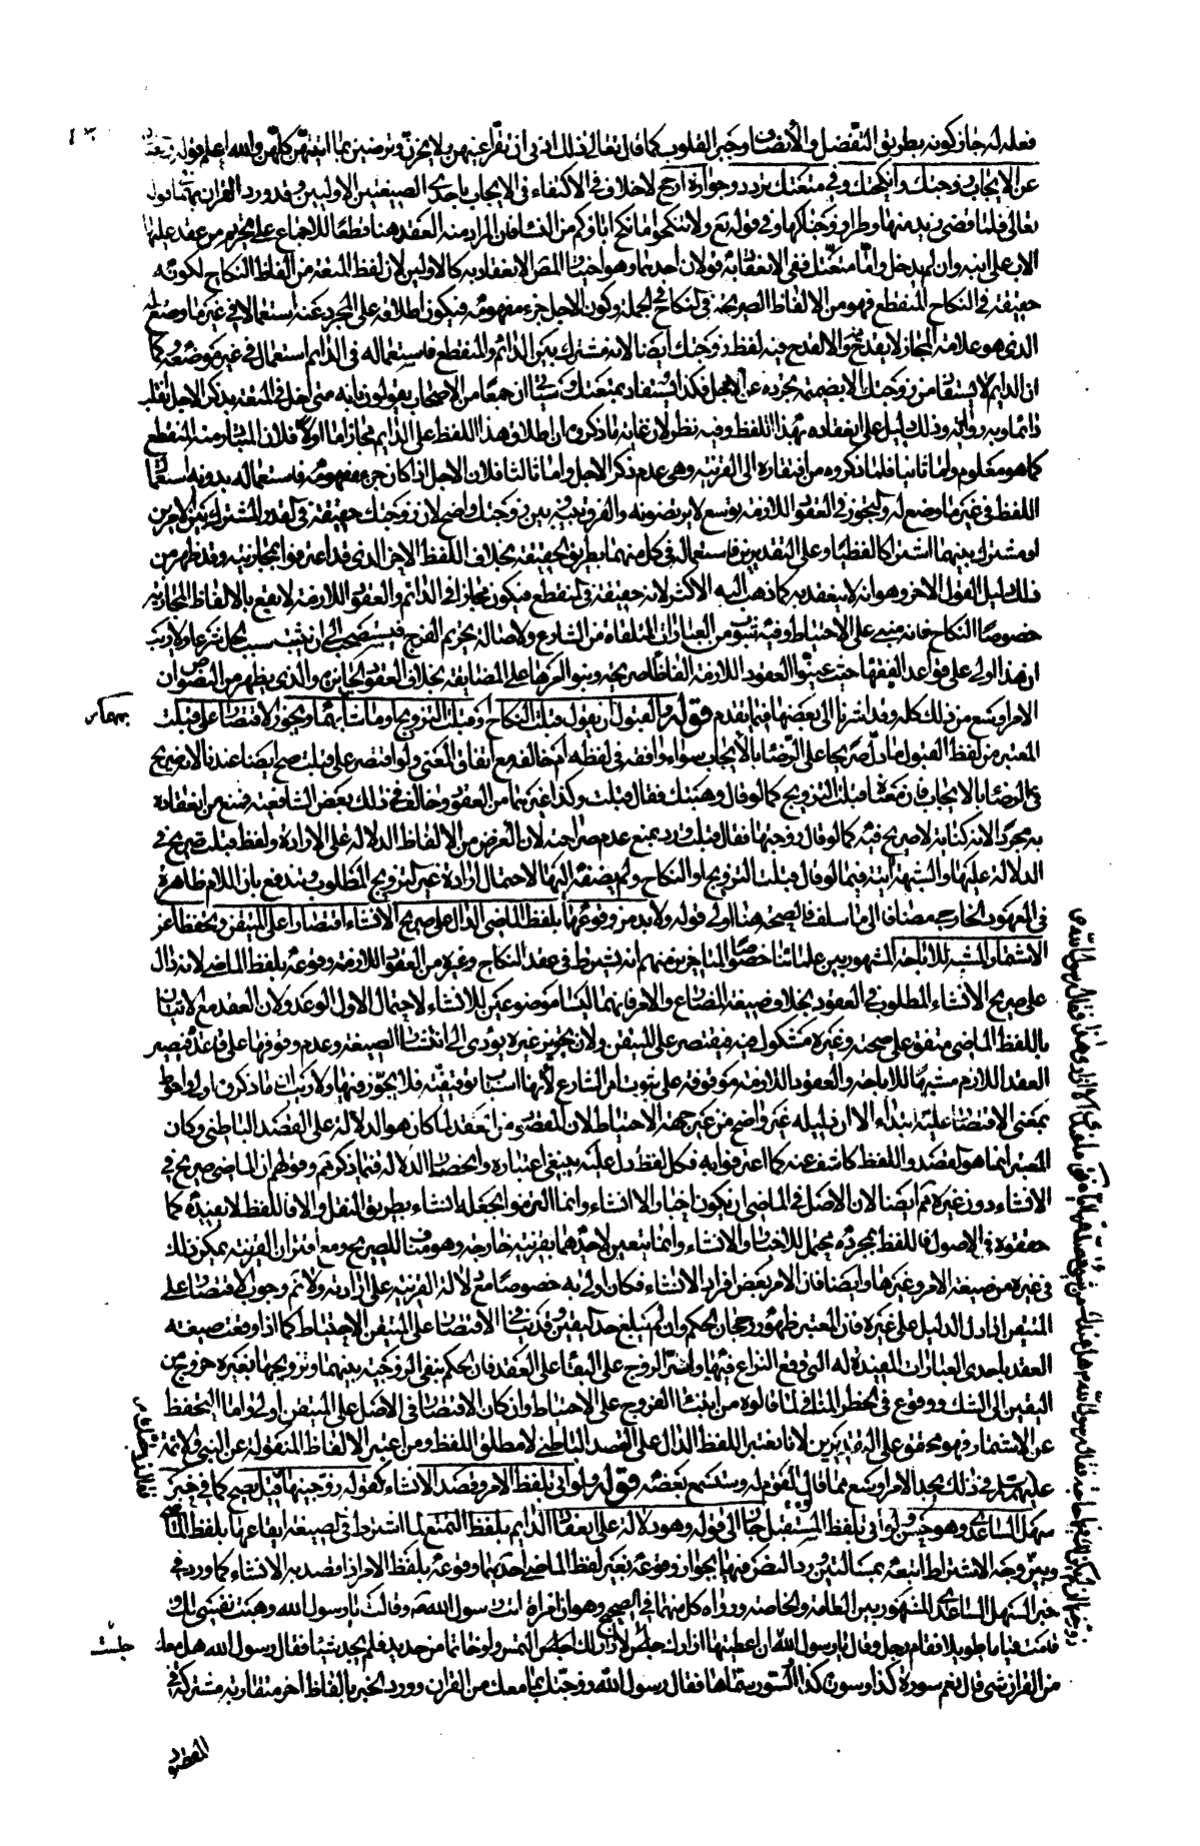 فعله له جاز وكونه بطريق التفضل والانصاف وجبر القلوب كما قال تعالى ذلك ادنى ان تقر اعينهن ولا يحزن ويرضين بما اتيتهن كلهن والله اعلم قوله
عن الايجاب زوجتك وانكحتك وفي متعتك تردد وجوازه ارجح لا خلاف في الاكتفاء في الايجاب باحدى الصيغتين الاوليين وقد ورد القران بهما في قوله
تعالى فلما قضى زيد منها وطرا زوجناكها وفي قوله تع ولا تنكحوا ما نكح اباؤكم من النساء فان المراد منه العقد هنا قطعا للاجماع على تحريم من عقد عليها
الاب على ابنه وان لم يدخل واما متعتك ففي الانعقاد به قولان احدهما وهو اختيار المص الانعقاد به كالاولين لان لفظ المتعة من الفاظ النكاح لكونه
حقيقة في النكاح المنقطع فهو من الالفاظ الصريحة في النكاح في الجملة وكون الاجل جزء مفهومه فيكون اطلاقه على المجرد عنه استعمالا في غير ما وضع له
الذي هو علامة المجاز لا يقدح والا لقدح فيه لفظ زوجتك ايضا لانه مشترك بين الدائم والمنقطع فاستعماله في الدائم استعمال في غير موضوعه وكما
ان الدائم لا يستفاد من زوجتك الا بضميمة تجرده عن الاجل فكذا يستفاد بمتعتك وسياتي ان جمعا من الاصحاب يقولون بانه متى اخل في المتعة بذكر الاجل انقلب
دائما وبه رواية وذلك دليل على انعقاده بهذا اللفظ وفيه نظر لان غاية ما ذكروه ان اطلاق هذا اللفظ على الدائم مجاز اما اولا فلان المتبادر منه المنقطع
كما هو معلوم واما ثانيا فلما ذكروه من افتقاره الى القرينة وهي عدم ذكر الاجل واما ثالثا فلان الاجل اذا كان جزء مفهومه فاستعماله بدونه استعمال
اللفظ في غير ما وضع له والتجوز في العقود اللازمة توسع لا يرتضونه والفرق بينه وبين زوجتك واضح لان زوجتك حقيقة في القدر المشترك بين الامرين
او مشترك بينهما اشتراكا لفظيا وعلى التقديرين فاستعماله في كل منهما بطريق الحقيقة بخلاف اللفظ الاخر الذي قد اعترفوا بمجازيته وقد ظهر من
ذلك دليل القول الاخر وهو انه لا ينعقد به كما ذهب اليه الاكثر لانه حقيقة في المنقطع فيكون مجازا في الدائم والعقود اللازمة لا تقع بالالفاظ المجازية
خصوصا النكاح فانه مبني على الاحتياط وفيه شوب من العبادات المتلقاة من الشارع ولاصالة تحريم الفرج فيستصحب الى ان يثبت سبب الحل شرعا ولا ريب
ان هذا اولى على قواعد الفقهاء حيث عينوا للعقود اللازمة الفاظا صريحة وبنوا امرها على المضايقة بخلاف العقود الجايزة والذي يظهر من النصوص ان
الامر اوسع من ذلك كله وقد اشرنا الى بعضها فيما تقدم قوله والقبول ان يقول قبلت النكاح او قبلت التزويج او ما شابههما ويجوز الاقتصار على قبلت
المعتبر من لفظ القبول ما دل صريحا على الرضا بالايجاب سواء وافقه في لفظه ام خالفه مع اتفاق المعنى ولو اقتصر على قبلت صح ايضا عندنا لانه صريح
في الرضا بالايجاب فان معناه قبلت التزويج كما لو قال وهبتك فقال قبلت وكذا غيرهما من العقود وخالف في ذلك بعض الشافعية فمنع من انعقاده
به مجردا لانه كناية لا صريح فيه كما لو قال زوجنيها فقال قبلت ورد بمنع عدم صراحته لان الغرض من الالفاظ الدلالة على الارادة ولفظ قبلت صريح في
الدلالة عليها والشبهة اتية فيما لو قال قبلت التزويج او النكاح ولم يضفه اليها لاحتمال ارادة غير التزويج المطلوب ويندفع بان اللام ظاهرة
في المعهود الخارجي مضافا الى ما سلف فالصحة هنا اولى قوله ولا بد من وقوعهما بلفظ الماضي الدال على صريح الانشاء اقتصارا على المتيقن وتحفظا عن
الاستيمار المشبه للاباحة المشهور بين علمائنا خصوصا المتاخرين منهم انه يشترط في عقد النكاح وغيره من العقود اللازمة وقوعه بلفظ الماضي لانه دال
على صريح الانشاء المطلوب في العقود بخلاف صيغة المضارع والامر فانهما ليسا موضوعين للانشاء لاحتمال الاول الوعد ولان العقد مع الاتيان
باللفظ الماضي متفق على صحته وغيره مشكوك فيه فيقتصر على المتيقن ولان تجويز غيره يؤدي الى انتشار الصيغة وعدم وقوفها على قاعدة فيصير
العقد اللازم مشبها للاباحة والعقود اللازمة موقوفة على ثبوت امر الشارع لانها اسباب توقيفية فلا يتجوز فيها ولا ريب ان ما ذكروه اولى واحوط
بمعنى الاقتصار عليه ابتداء الا ان دليله غير واضح من غير جهة الاحتياط لان المقصود من العقد لما كان هو الدلالة على القصد الباطني وكان
المعتبر انما هو القصد واللفظ كاشف عنه كما اعترفوا به فكل لفظ دل عليه ينبغي اعتباره وانحصار الدلالة فيما ذكروه وقولهم ان الماضي صريح في
الانشاء دون غيره ثم ايضا لان الاصل في الماضي ان يكون اخبارا لا انشاء وانما التزموا بجعله انشاء بطريق النقل والا فاللفظ لا يفيده كما
حققوه في الاصول فاللفظ بمجرده محتمل للاخبار والانشاء وانما يتعين لاحدهما بقرينة خارجة وهو مناف للصريح ومع اقتران القرينة يمكن ذلك
في غيره من صيغة الامر وغيرها وايضا فان الامر بعض افراد الانشاء فكان اولى به خصوصا مع دلالة القرينة على ارادته ولا ثم وجوب الاقتصار على
المتيقن اذا دل الدليل على غيره فان المعتبر ظهور رجحان الحكم وان لم يبلغ حد اليقين وقد ينافي الاقتصار على المتيقن الاحتياط كما اذا وقعت صيغة
العقد باحدى العبارات المفيدة له التي وقع النزاع فيها واصر الزوج على البقاء على العقد فان الحكم بنفي الزوجية بينهما وتزويجها بغيره خروج من
اليقين الى الشك ووقوع في الخطر المنافي لما قالوه من ابتناء الفروج على الاحتياط وان كان الاقتصار في الاصل على المتيقن اولى واما التحفظ
عن الاستيمار فهو محقق على التقديرين لانا نعتبر اللفظ الدال على القصد الباطني لا مطلق اللفظ ومن اعتبر الالفاظ المنقولة عن النبي والائمة
عليهم السلام في ذلك يجد الامر اوسع مما قاله القوم له وستسمع بعضه قوله ولو اتى بلفظ الامر وقصد الانشاء كقوله زوجنيها قيل يصح كما في خبر
سهل الساعدي وهو حسن ولو اتى بلفظ المستقبل جاز الى قوله وهو دلالة على انعقاد الدايم بلفظ التمتع لما اشترط في الصيغة ايقاعها بلفظ الماضي
وبين وجه الاشتراط اتبعه بمسالتين ورد النص فيهما بجواز وقوعه بغير لفظ الماضي احديهما وقوعه بلفظ الامر اذا قصد به الانشاء كما ورد في
خبر السهل الساعدي المشهور بين العامة والخاصة ورواه كل منهما في الصحيح وهو ان امراة اتت رسول الله ص وقالت يا رسول الله وهبت نفسي لك و
قامت قياما طويلا فقام رجل وقال يا رسول الله ان اعطيتها ازارك جلست لا ازار لك التمس ولو خاتما من حديد فلم يجد شيئا فقال رسول الله هل معك
من القران شيء قال نعم سورة كذا وسورة كذا لسور سماها فقال رسول الله زوجتك بما معك من القران وورد الخبر بالفاظ اخر متقاربة مشتركة في
المقصود
جلست